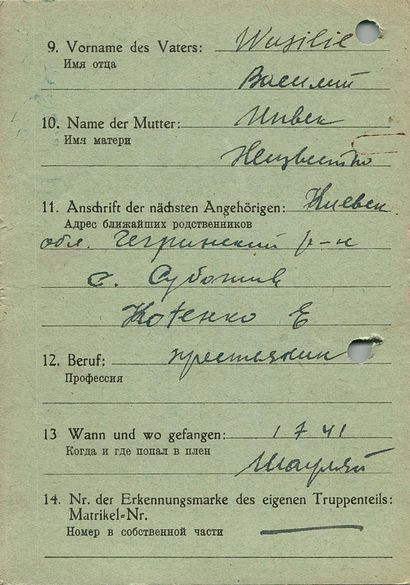 9. Vorname des Vaters: Wasilie
Имя отца
Василий
10. Name der Mutter:
Имя матери
Неизвестно
11. Anschrift der nächsten Angehörigen: Киевск
Адрес ближайших родственников
обл. Чегринский р-н
с. Суботив
Котенко Е
12. Beruf: крестьянин
Профессия
13 Wann und wo gefangen: 1 7 41
Когда и где попал в плен
Шауляй
14. Nr. der Erkennungsmarke des eigenen Truppenteils:
Matrikel-Nr.
Номер в собственной части